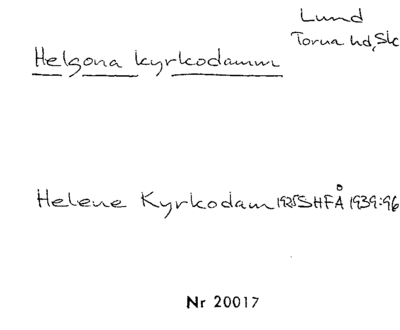 Lund
Torna hd, Sk
Helgona kyrkodamm
Helene Kyrkodam 1925 SHFÅ 1939:96
Nr 20017